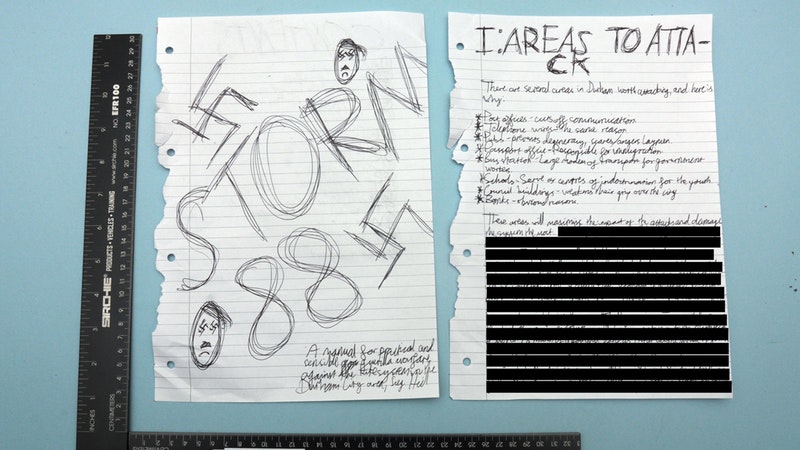 STORM
88
A manual for practical and
sensible guerrilla warfare
against the system in the
Durham City area,
I: AREAS TO ATTA-
CK
There are several areas in Durham worth attacking, and here is
why:
* Post offices - cuts off communication
* Telephone wires - the same reason
* Pubs - degeneracy,
* Passport office - Responsible for immigration
* Bus station - Large modem of transport for government
workers
* Schools - Serve as centres of indoctrination for the youth
* Council buildings - weakens their grip over the city
* Banks - obvious reasons
These areas will maximise the impact of the attacks and damage
the system the most.
SIRCHIE
PRODUCTS • VEHICLES • TRAINING
www.sirchie.com
NO. EFR100
INCHES
CENTIMETERS